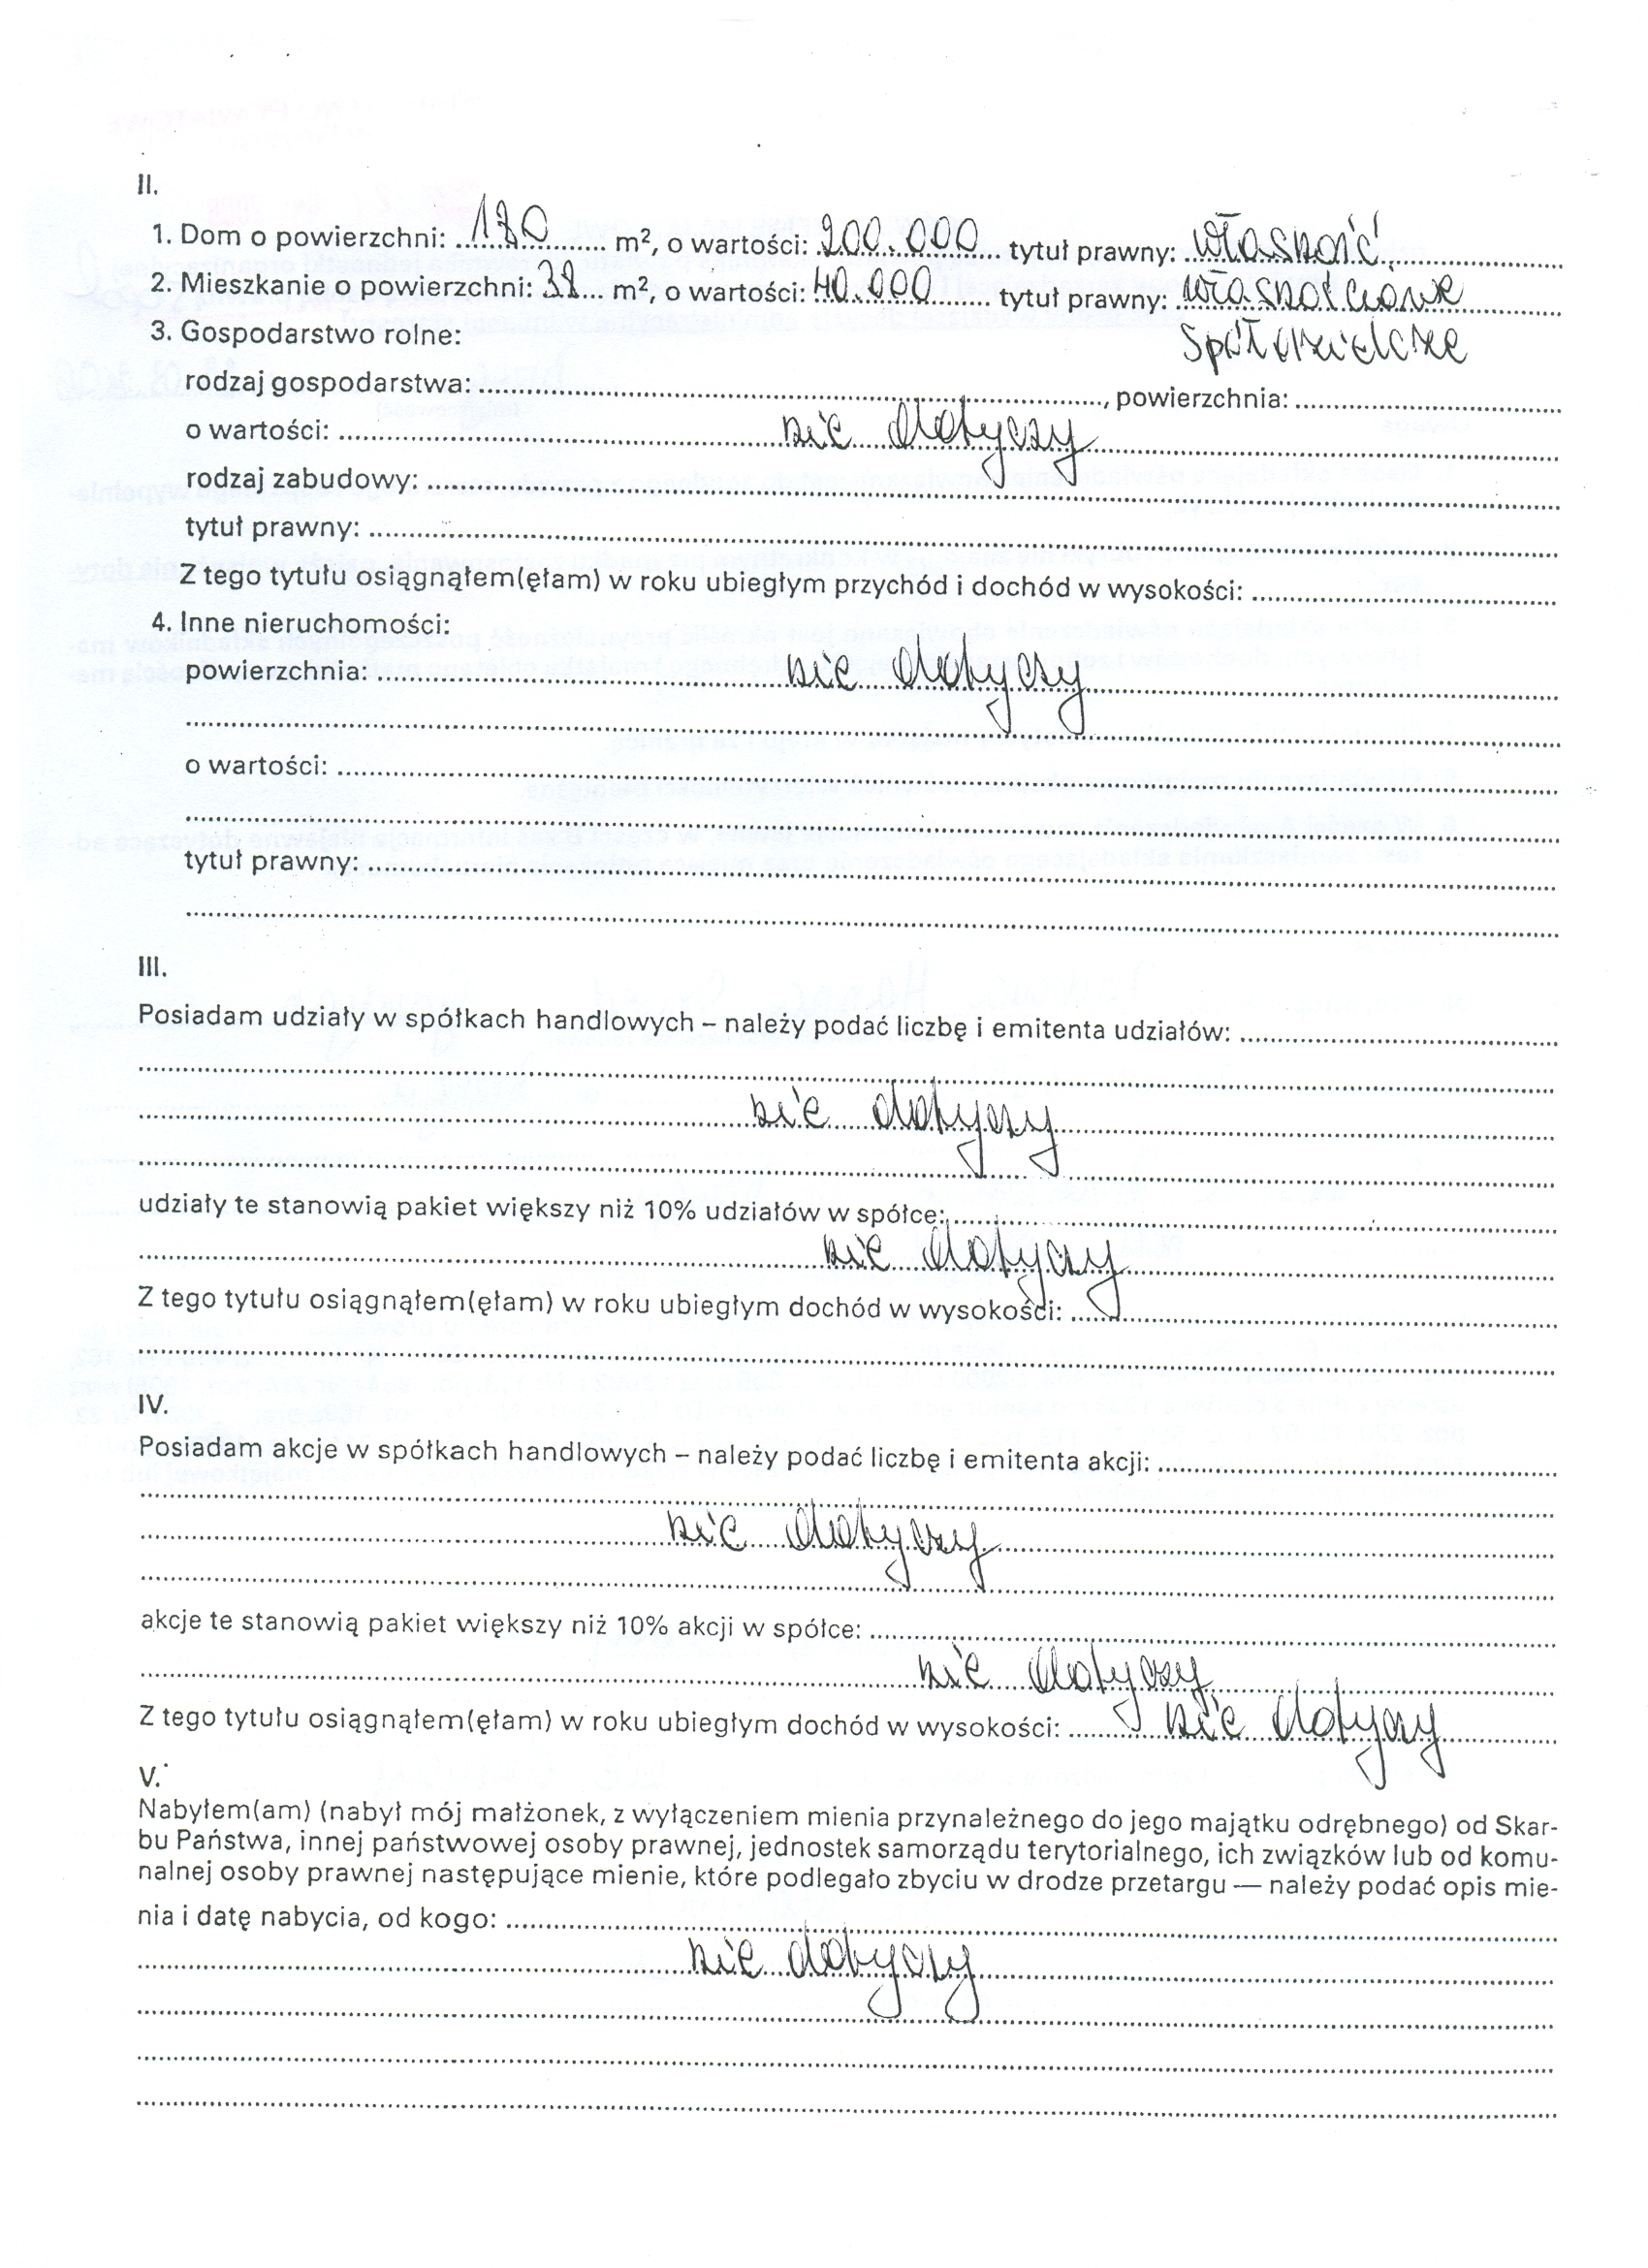 II.
1. Dom o powierzchni: ........ m², o wartości: 200.000 tytuł prawny: własność
2. Mieszkanie o powierzchni: 38 m², o wartości: 40.000 tytuł prawny: własnościowe
3. Gospodarstwo rolne: spółdzielcze
rodzaj gospodarstwa: ........, powierzchnia: ........
o wartości: nie dotyczy
rodzaj zabudowy: ........
tytuł prawny: ........
Z tego tytułu osiągnąłem(ęłam) w roku ubiegłym przychód i dochód w wysokości: ........
4. Inne nieruchomości:
powierzchnia: nie dotyczy
o wartości: ........
tytuł prawny: ........
III.
Posiadam udziały w spółkach handlowych – należy podać liczbę i emitenta udziałów: ........
nie dotyczy
udziały te stanowią pakiet większy niż 10% udziałów w spółce: ........
nie dotyczy
Z tego tytułu osiągnąłem(ęłam) w roku ubiegłym dochód w wysokości: ........
IV.
Posiadam akcje w spółkach handlowych – należy podać liczbę i emitenta akcji: ........
nie dotyczy
akcje te stanowią pakiet większy niż 10% akcji w spółce: ........
nie dotyczy
Z tego tytułu osiągnąłem(ęłam) w roku ubiegłym dochód w wysokości: nie dotyczy
V.
Nabyłem(am) (nabył mój małżonek, z wyłączeniem mienia przynależnego do jego majątku odrębnego) od Skar-
bu Państwa, innej państwowej osoby prawnej, jednostek samorządu terytorialnego, ich związków lub od komu-
nalnej osoby prawnej następujące mienie, które podlegało zbyciu w drodze przetargu — należy podać opis mie-
nia i datę nabycia, od kogo: ........
nie dotyczy